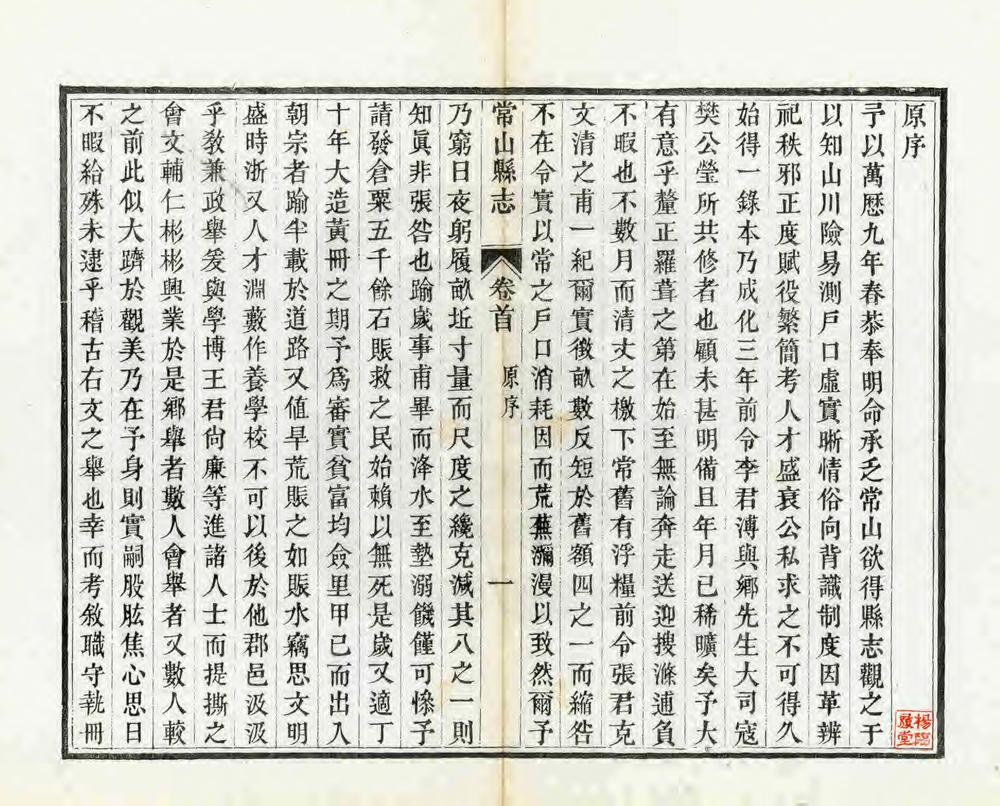 原序
予以萬曆九年春恭奉明命承乏常山欲得縣志觀之于
以知山川險易測戸口虛實晰情俗向背識制度因革辨
祀秩邪正度賦役繁簡考人才盛衰公私求之不可得久
始得一錄本乃成化三年前令李君溥與鄉先生大司寇
樊公瑩所共修者也顧未甚明備且年月已稀曠矣予大
有意乎釐正羅葺之第在始至無論奔走送迎搜滌逋負
不暇也不數月而清丈之檄下常舊有浮糧前令張君克
文清之甫一紀爾實徵畝數反短於舊額四之一而縮咎
不在令實以常之戸口消耗因而荒蕪瀰漫以致然爾予
常山縣志
卷首
原序
一
乃窮日夜躬履畝坵寸量而尺度之纔克減其八之一則
知眞非張咎也踰歲事甫畢而洚水至墊溺饑饉可慘予
請發倉粟五千餘石賑救之民始賴以無死是歲又適丁
十年大造黃冊之期予爲審實貧富均僉里甲已而出入
朝宗者踰半載於道路又値旱荒賑之如賑水竊思文明
盛時浙又人才淵藪作養學校不可以後於他郡邑汲汲
乎敎兼政舉爰與學博王君尙廉等進諸人士而提撕之
會文輔仁彬彬興業於是鄉舉者數人會舉者又數人較
之前此似大躋於觀美乃在予身則實嗣股肱焦心思日
不暇給殊未逮乎稽古右文之舉也幸而考敘職守執冊
楊陽履堂